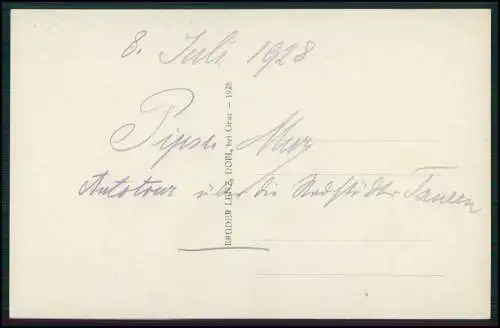 8. Juli 1928
Autotour über die Radstädter Tauern
BRÜDER LENZ, DOBL, bei Graz – 1928